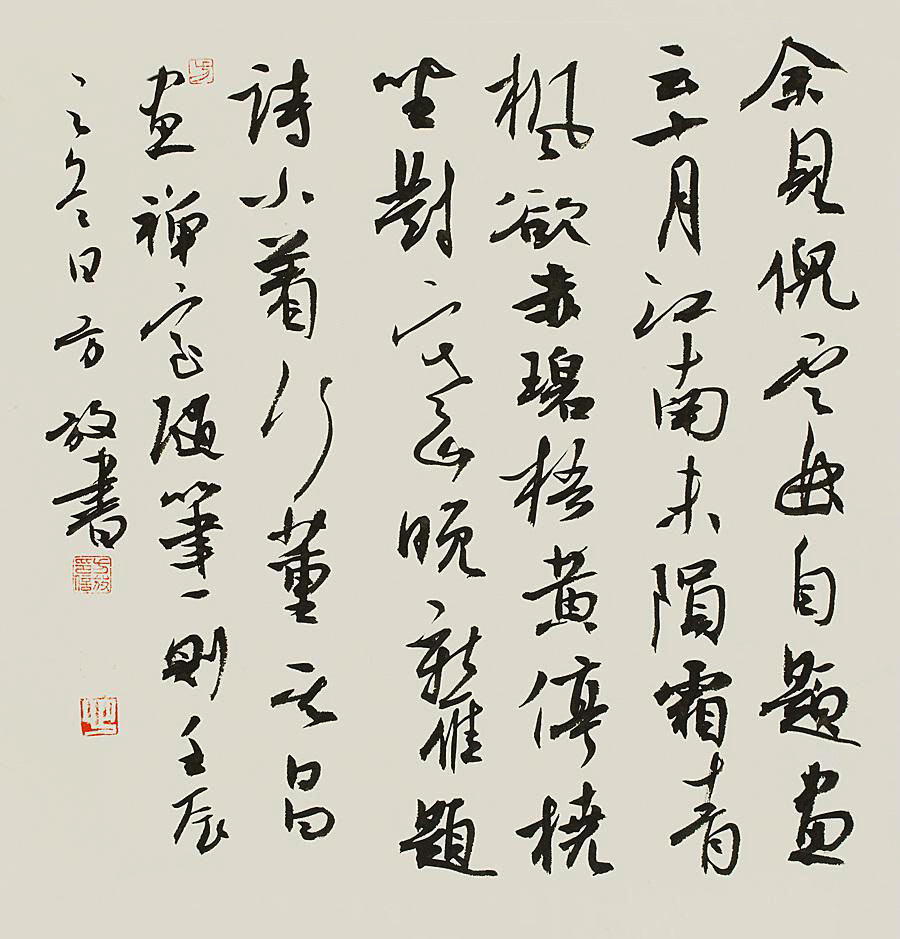 余見倪雲自題畫
云十月江南未隕霜青
楓欲赤碧梧黃停橈
坐對寒山晚新雁題
詩小着行董其昌
畫禪室隨筆一則壬辰
之冬日方放書
方
方放印信